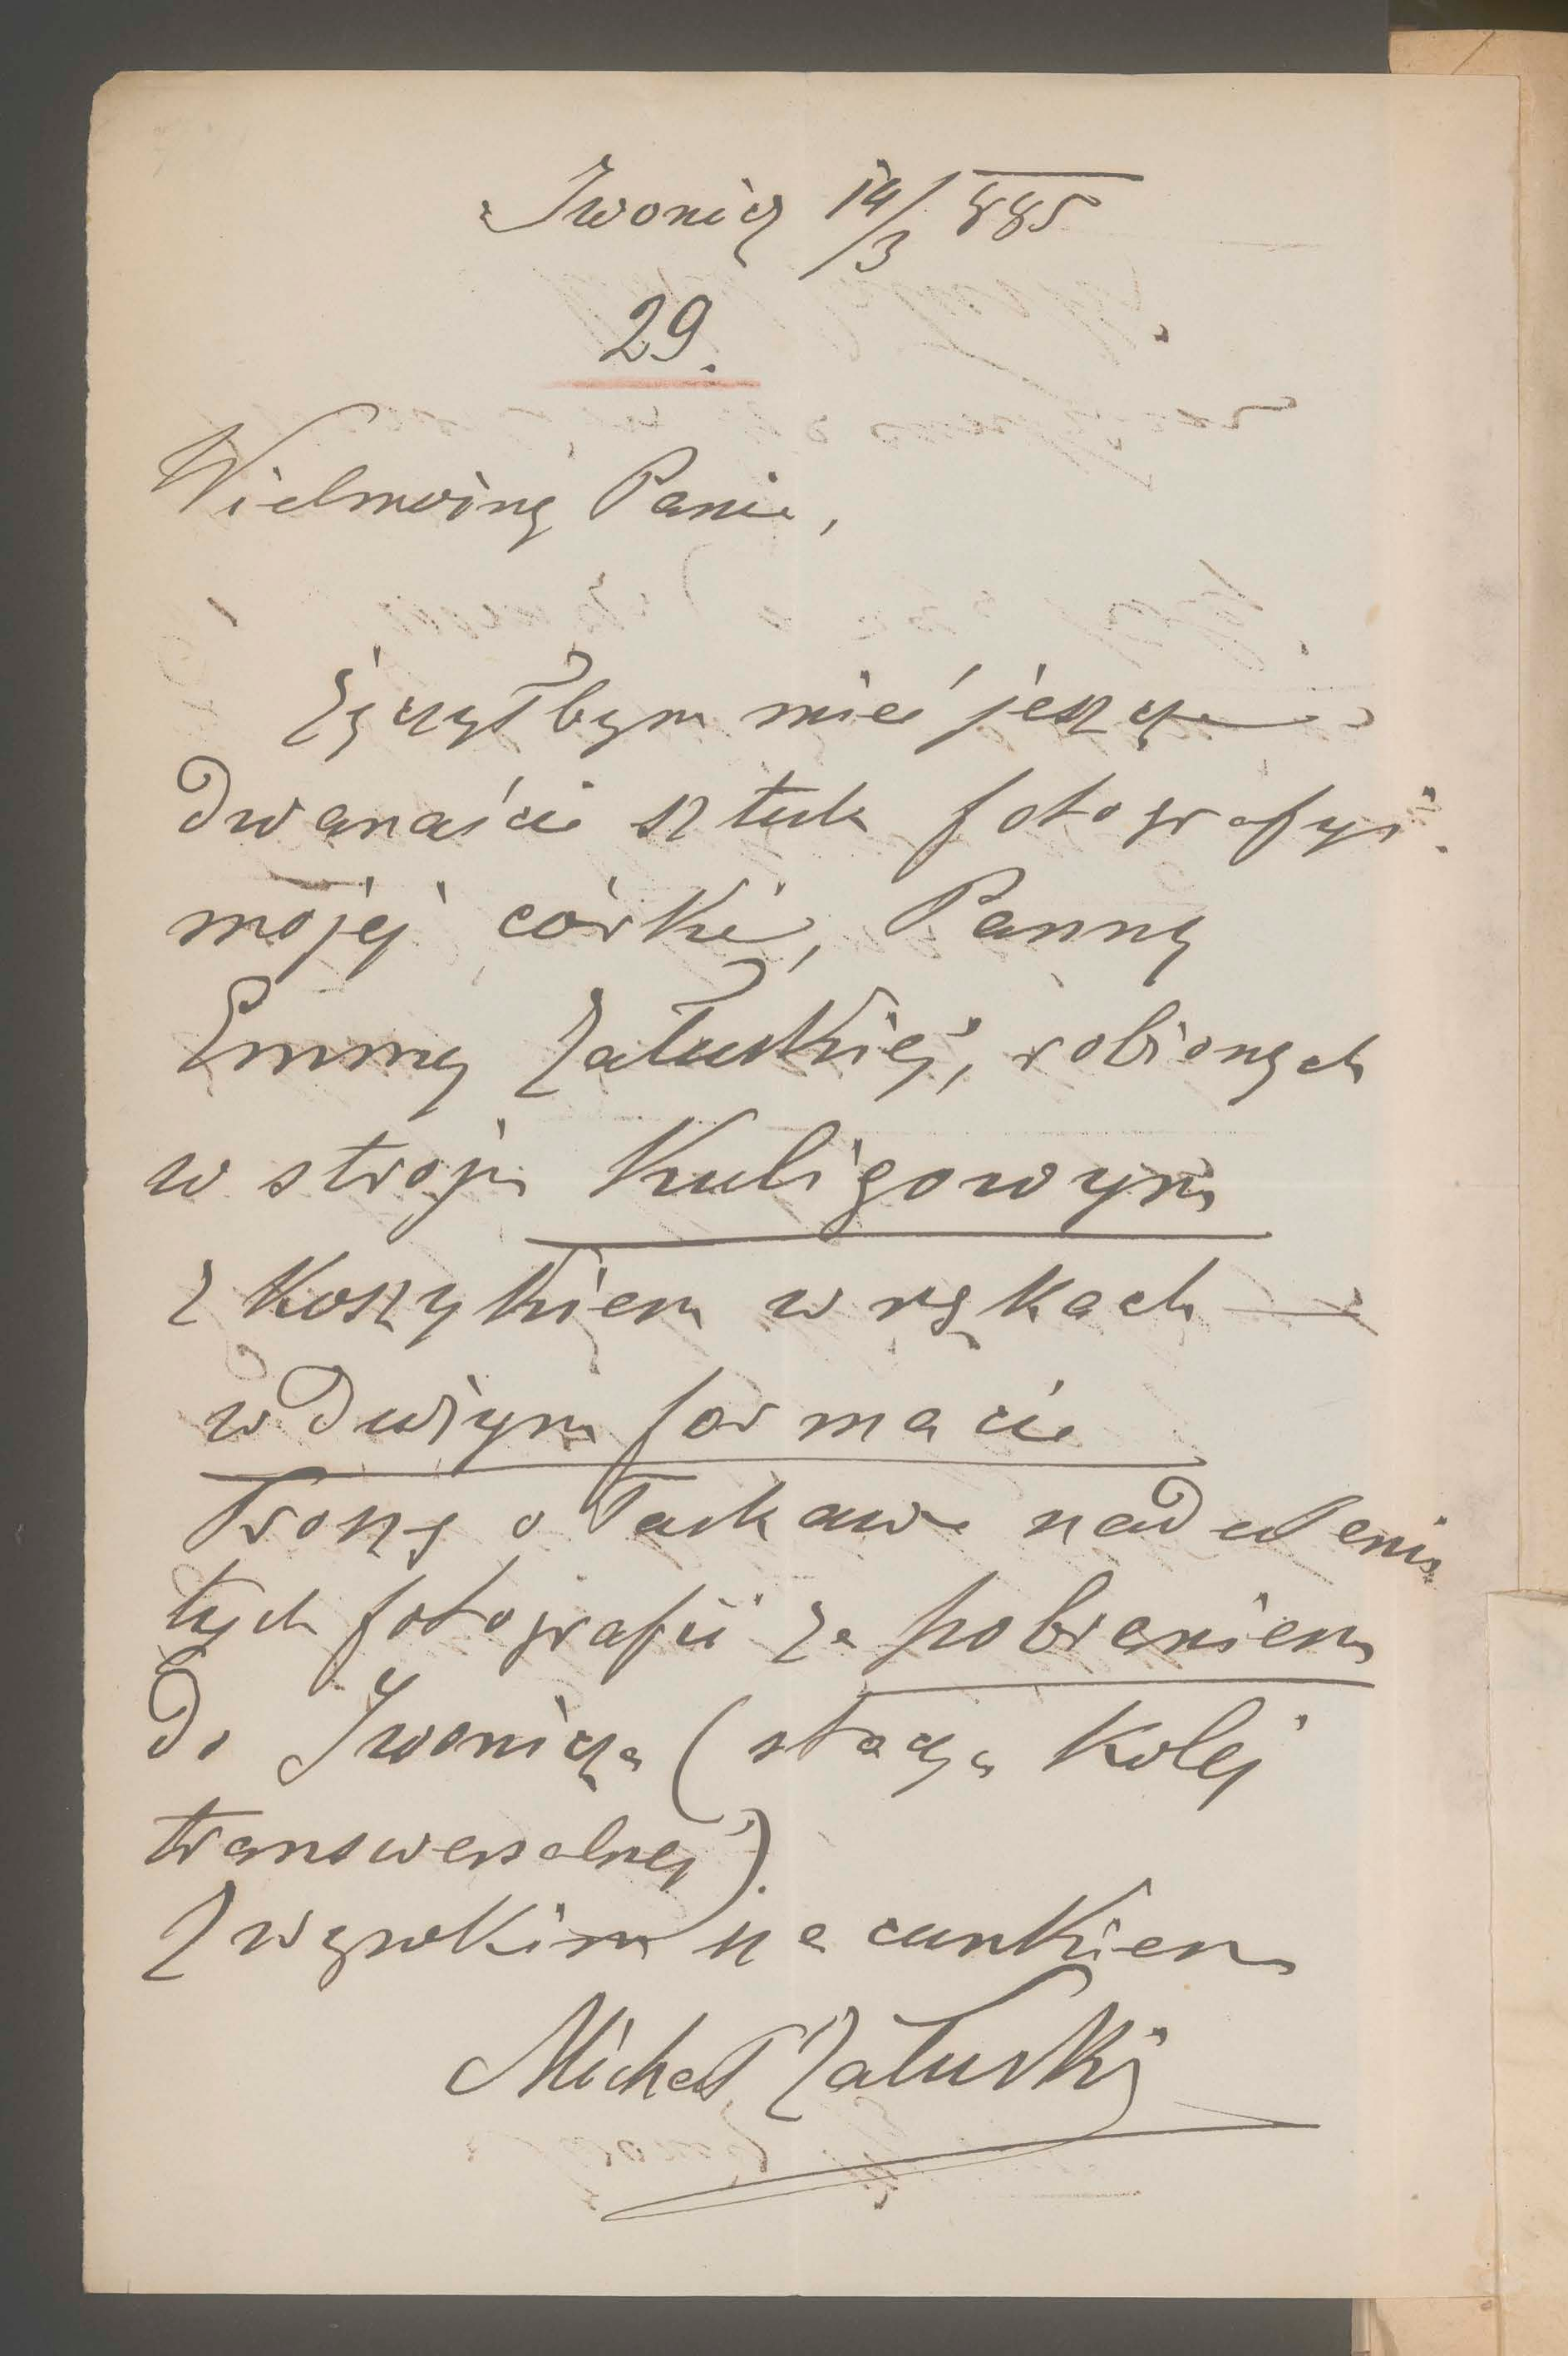 Iwonicz 14/3 885
29.
Wielmożny Panie,
Życzyłbym mieć jeszcze
dwanaście sztuk fotografyi
mojej córki, Panny
Emmy Załuskiej, robionych
w stroju Kuligowym
z Koszykiem w rękach
w dużym formacie
Proszę o łaskawe nadesłanie
tych fotografii za pobraniem
do Iwonicza (stacya Kolej
transwersalnej).
Z wysokim szacunkiem
Michał Załuski